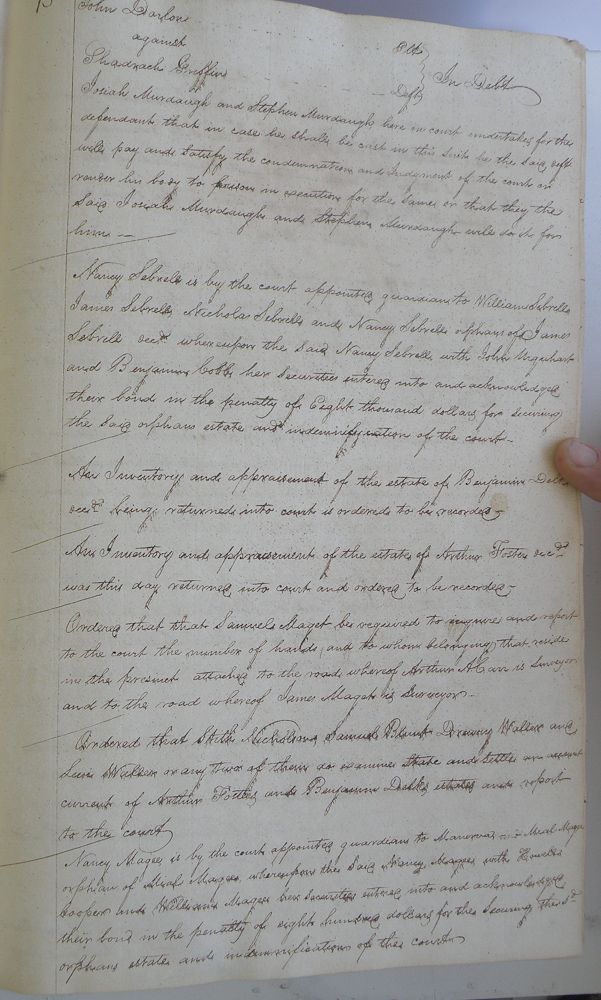 John Darlon
against
Plt
Shadrach Griffin
Deft
In Debt
Josiah Murdaugh and Stephen Murdaugh here in court undertakes for the
defendant that in case he shall be cast in this suit he the said deft
will pay and satisfy the condemnation and Judgment of the court or
render his body to prison in execution for the same or that they the
said Josiah Murdaugh and Stephen Murdaugh will do it for
him —
Nancy Sebrell is by the court appointed guardian to William Sebrell
James Sebrell, Nicholas Sebrell and Nancy Sebrell orphans of James
Sebrell decd. whereupon the said Nancy Sebrell with John Urquhart
and Benjamin Cobb her securities entered into and acknowledged
their bond in the penalty of Eight thousand dollars for securing
the said orphans estate and indemnification of the court —
An Inventory and appraisement of the estate of Benjamin
decd. being returned into court is ordered to be recorded —
An Inventory and appraisement of the estate of Arthur Foster decd.
was this day returned into court and ordered to be recorded —
Ordered that that Samuel Maget be required to inquire and report
to the court the number of hands, and to whom belonging, that reside
in the precinct attached to the road whereof Arthur A Carr is Surveyor
and to the road whereof James Maget is surveyor —
Ordered that Stith Nicholson Samuel Blunt Drewry Waller and
Lewis Waller or any two of them do examine state and settle an account
current of Arthur Foster and Benjamin estates and report
to the court
Nancy Magee is by the court appointed guardian to Magee
orphan of Magee, whereupon the said Nancy Magee with
Cooper and William Magee her securities entered into and acknowledged
their bond in the penalty of eight hundred dollars for the securing the sd.
orphans estate and indemnification of the court